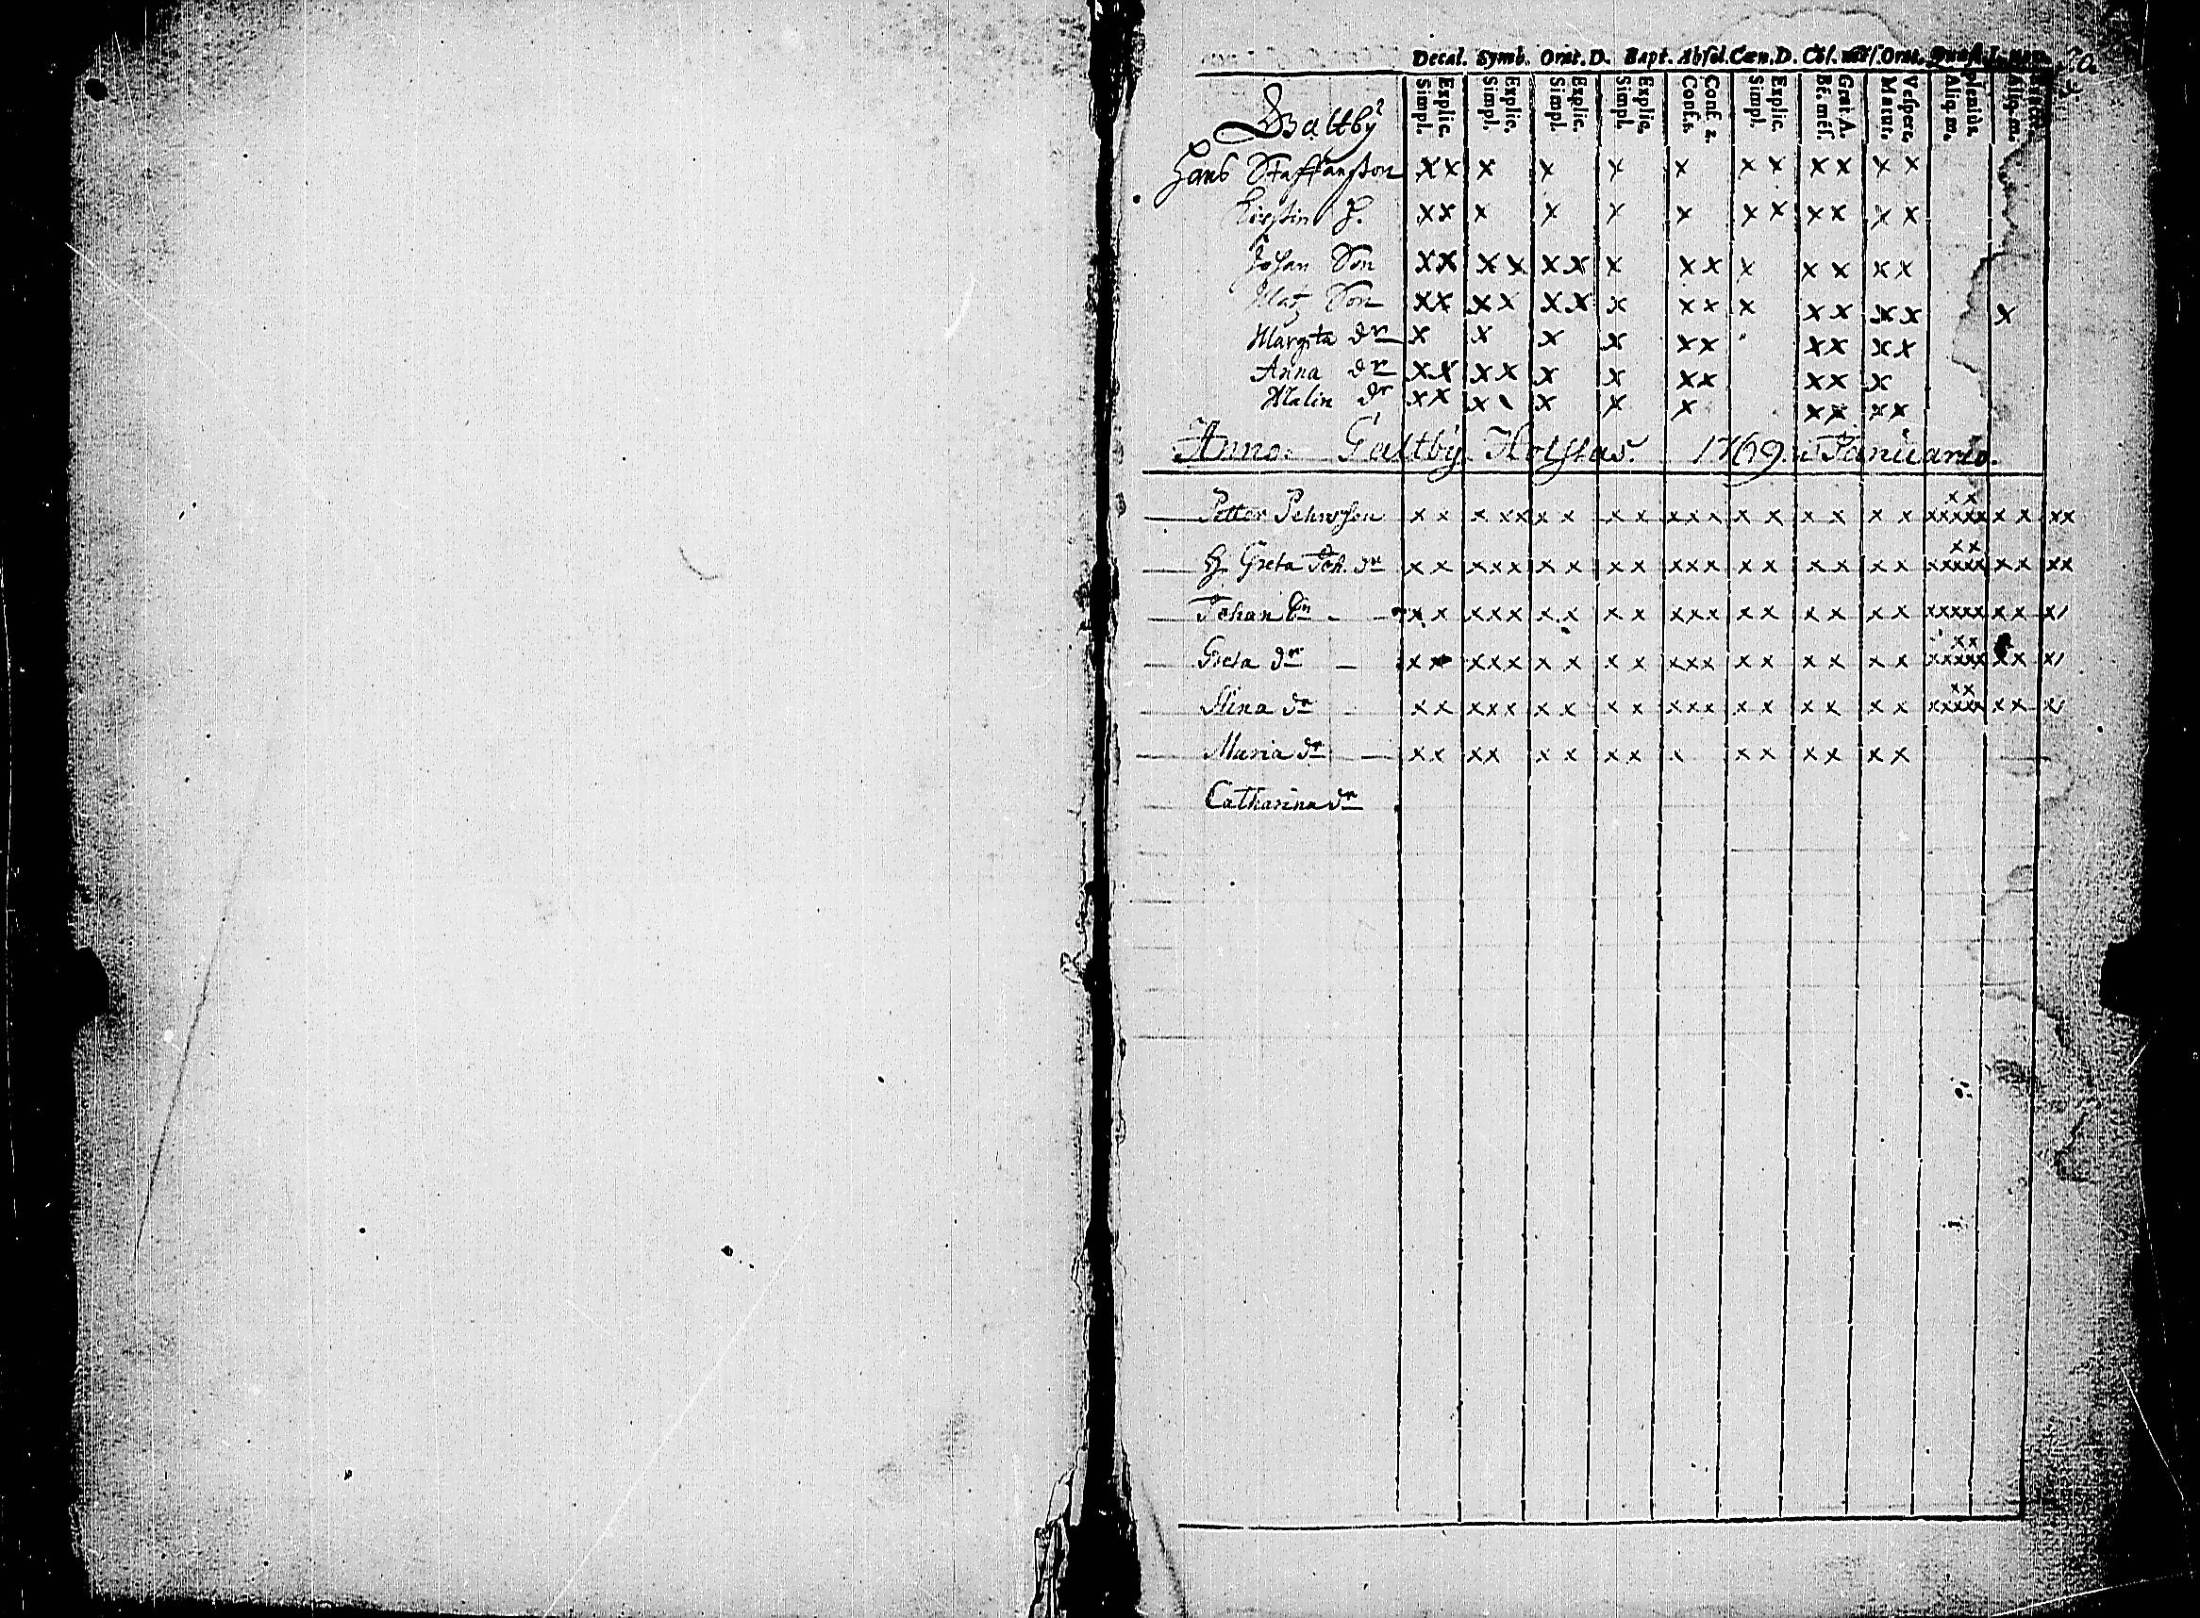 Decal. Symb. Orat. D. Bapt. Absol. Cœn. D. Orat.
Simpl. Explic. Simpl. Explic. Simpl. Explic. Simpl. Explic. Conf. 1. Conf. 2. Simpl. Explic. Be. mēs. Grat. A. Matut. Vespert. Aliq. m. plenide. Aliq. m.
Galtby
Hans Staffansson xx x x x x xx xx xx
Kirstin H. xx x x x x xx xx xx
Johan Son xx xx xx x xx x xx xx
Matz Son xx xx xx x xx x xx xx x
Margeta dr x x x x xx xx xx
Anna dr xx xx x x xx xx x
Malin dr xx x x x x xx xx
Anno. Galtby 1769. Januario.
Petter xx xxx xx xx xxx xx xx xx xx xxxxx xx xx
H. Greta Joh. dr xx xxx xx xx xxx xx xx xx xx xxxxx xx xx
Johan Sn xx xxx xx xx xxx xx xx xx xxxxx xx x/
Greta dr xx xxx xx xx xxx xx xx xx xx xxxxx xx x/
Stina dr xx xxx xx xx xxx xx xx xx xx xxxxx xx x/
Maria dr xx xx xx xx x xx xx xx
Catharina dr